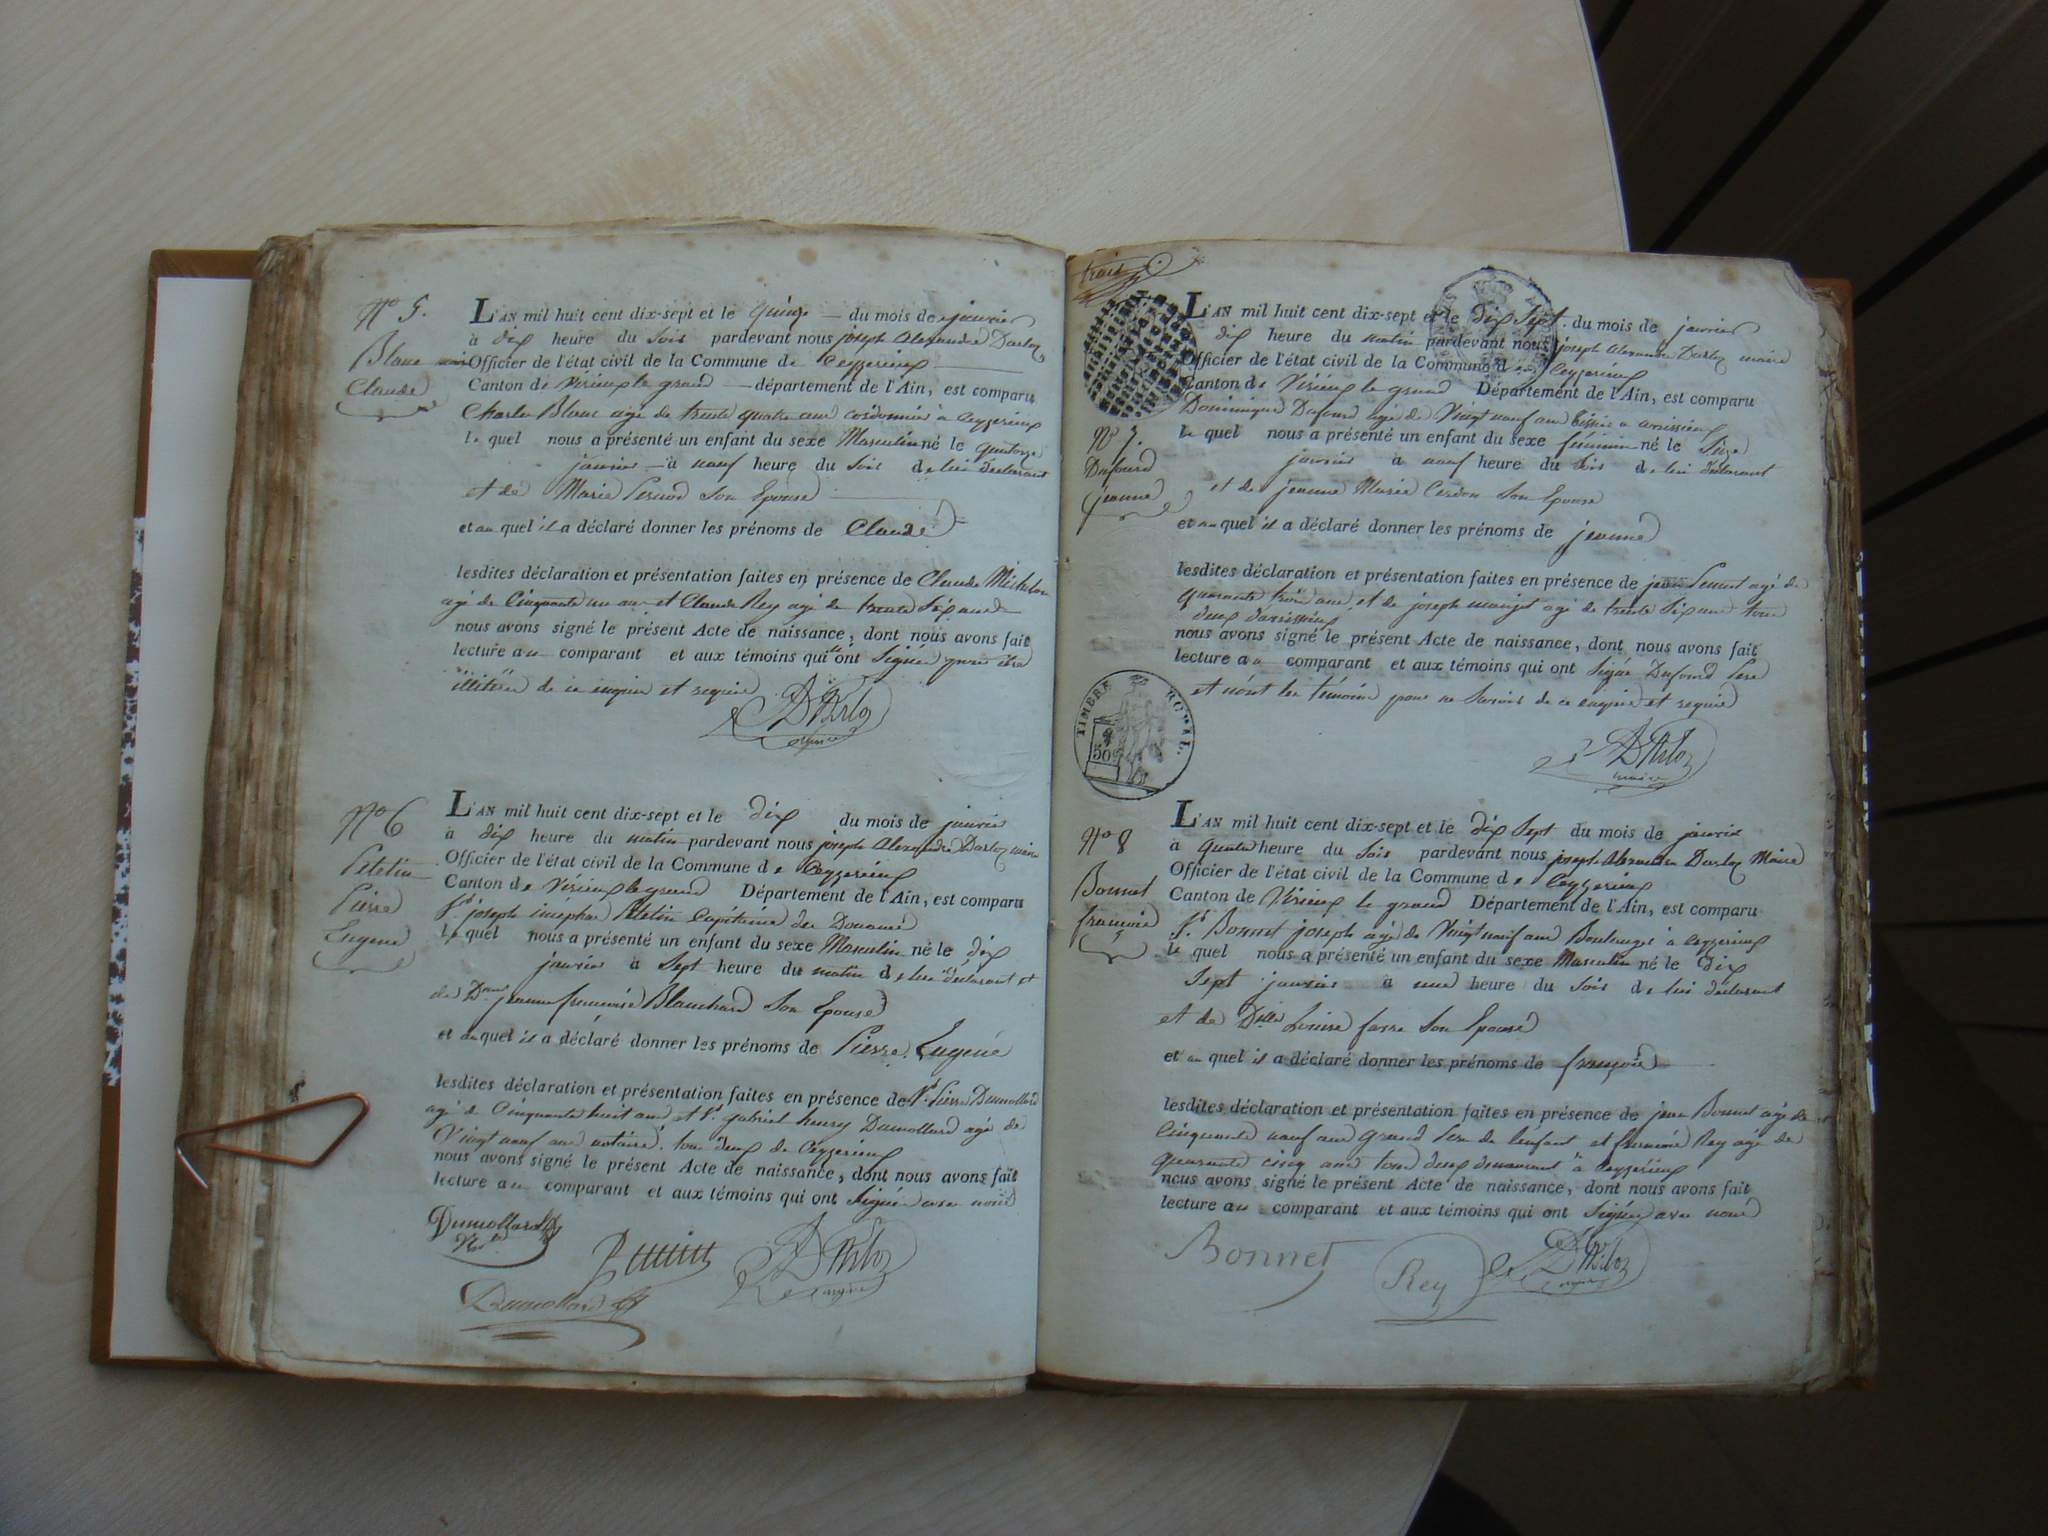 N° 5.
Blanc
Claude
L'AN mil huit cent dix-sept et le quinze du mois de janvier
à dix heure du soir pardevant nous joseph Alexandre Darloz
maire Officier de l'état civil de la Commune de Ceyzerieux
Canton de Virieux le grand département de l'Ain, est comparu
Charles Blanc agé de trente quatre ans cordonnier à Ceyzerieux
le quel nous a présenté un enfant du sexe Masculin né le quatorze
janvier à neuf heure du soir de lui déclarant
et de Marie son Epouse
et au quel il a déclaré donner les prénoms de Claude
lesdites déclaration et présentation faites en présence de Claude Michelon
agé de Cinquante un ans et Claude Rey agé de trente Six ans
nous avons signé le présent Acte de naissance, dont nous avons fait
lecture au comparant et aux témoins qui ont Signé pour être
illitérés de ce enquis et requis
D'Arloz
maire
N° 6
Petetin
Pierre
Eugene
L'AN mil huit cent dix-sept et le dix du mois de janvier
à dix heure du matin pardevant nous joseph Alexandre Darloz maire
Officier de l'état civil de la Commune de Ceyzerieux
Canton de Virieux le grand Département de l'Ain, est comparu
Sr. joseph Petetin Capitaine des Douanes
le quel nous a présenté un enfant du sexe Masculin né le dix
janvier à Sept heure du matin de lui déclarant et
de Dame jeanne françoise Blanchard Son Epouse
et au quel il a déclaré donner les prénoms de Pierre Eugene
lesdites déclaration et présentation faites en présence de Sr. Pierre Dumollard
agé de Cinquante huit ans et Sr. gabriel henry Dumollard agé de
Vingt neuf ans notaire. tous deux de Ceyzerieux
nous avons signé le présent Acte de naissance, dont nous avons fait
lecture au comparant et aux témoins qui ont Signé avec nous
Dumollard
D'Arloz
maire
Dumollard
trois
N° 7.
Dufourd
jeanne
L'AN mil huit cent dix-sept et le dix Sept du mois de janvier
dix heure du matin pardevant nous joseph Alexandre Darloz maire
Officier de l'état civil de la Commune de Ceyzerieux
Canton de Virieux le grand Département de l'Ain, est comparu
Dominique Dufourd agé de Vingt neuf ans
le quel nous a présenté un enfant du sexe féminin né le Seize
janvier à neuf heure du Soir de lui déclarant
et de jeanne Marie Cerdon Son Epouse
et au quel il a déclaré donner les prénoms de jeanne
lesdites déclaration et présentation faites en présence de agé de
quarante trois ans, et de joseph agé de trente Six ans tous
deux
nous avons signé le présent Acte de naissance, dont nous avons fait
lecture au comparant et aux témoins qui ont Signé Dufourd Pere
et non les témoins pour ne Savoir de ce enquis et requis
D'Arloz
maire
TIMBRE ROYAL.
50
N° 8
Bonnet
françois
L'AN mil huit cent dix-sept et le dix Sept du mois de janvier
à quatre heure du Soir pardevant nous joseph Alexandre Darloz Maire
Officier de l'état civil de la Commune de Ceyzerieux
Canton de Virieux le grand Département de l'Ain, est comparu
Sr. Bonnet joseph agé de Vingt neuf ans Boulanger à Ceyzerieux
le quel nous a présenté un enfant du sexe Masculin né le dix
Sept janvier à une heure du Soir de lui déclarant
et de Delle Louise favre Son Epouse
et au quel il a déclaré donner les prénoms de françois
lesdites déclaration et présentation faites en présence de jean Bonnet agé de
Cinquante neuf ans grand Pere de l'enfant et françois Rey agé de
quarante cinq ans tous deux demeurant à Ceyzerieux
nous avons signé le présent Acte de naissance, dont nous avons fait
lecture au comparant et aux témoins qui ont Signé avec nous
Bonnet
Rey
D'Arloz
maire